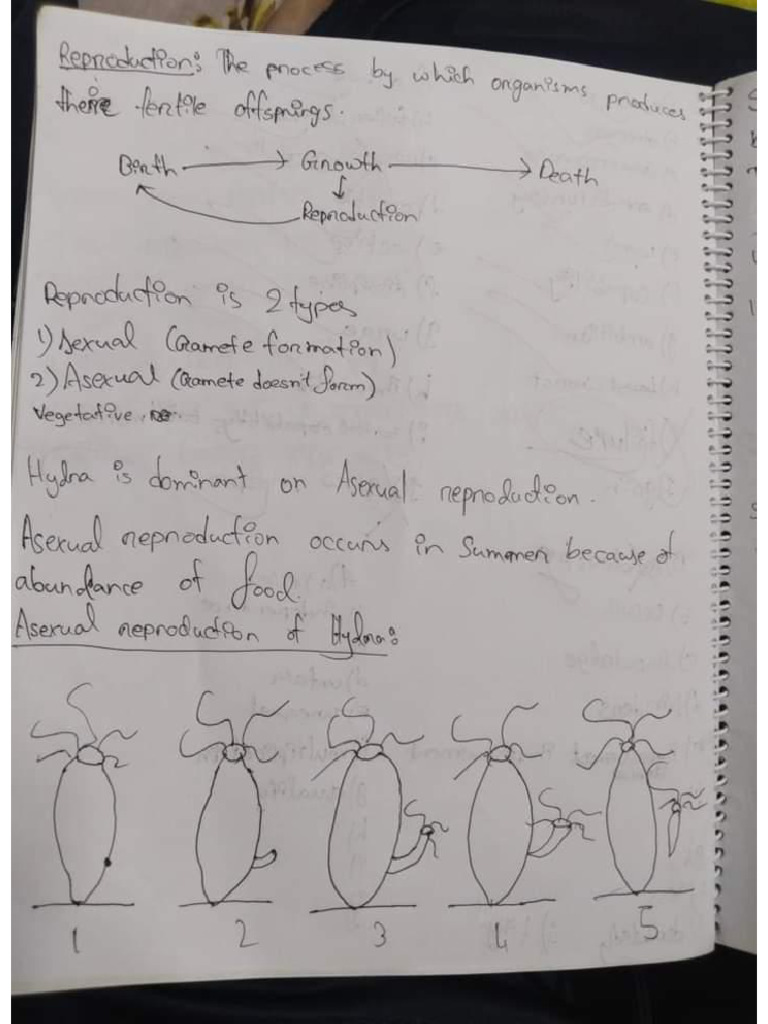 Reproduction: The process by which organisms produces
there fertile offsprings.
Birth → Growth → Death
Reproduction
Reproduction is 2 types
1) Sexual (Gamete formation)
2) Asexual (Gamete doesn't form)
Vegetative
Hydra is dominant on Asexual reproduction.
Asexual reproduction occurs in Summer because of
abundance of food.
Asexual reproduction of Hydra:
1 2 3 4 5